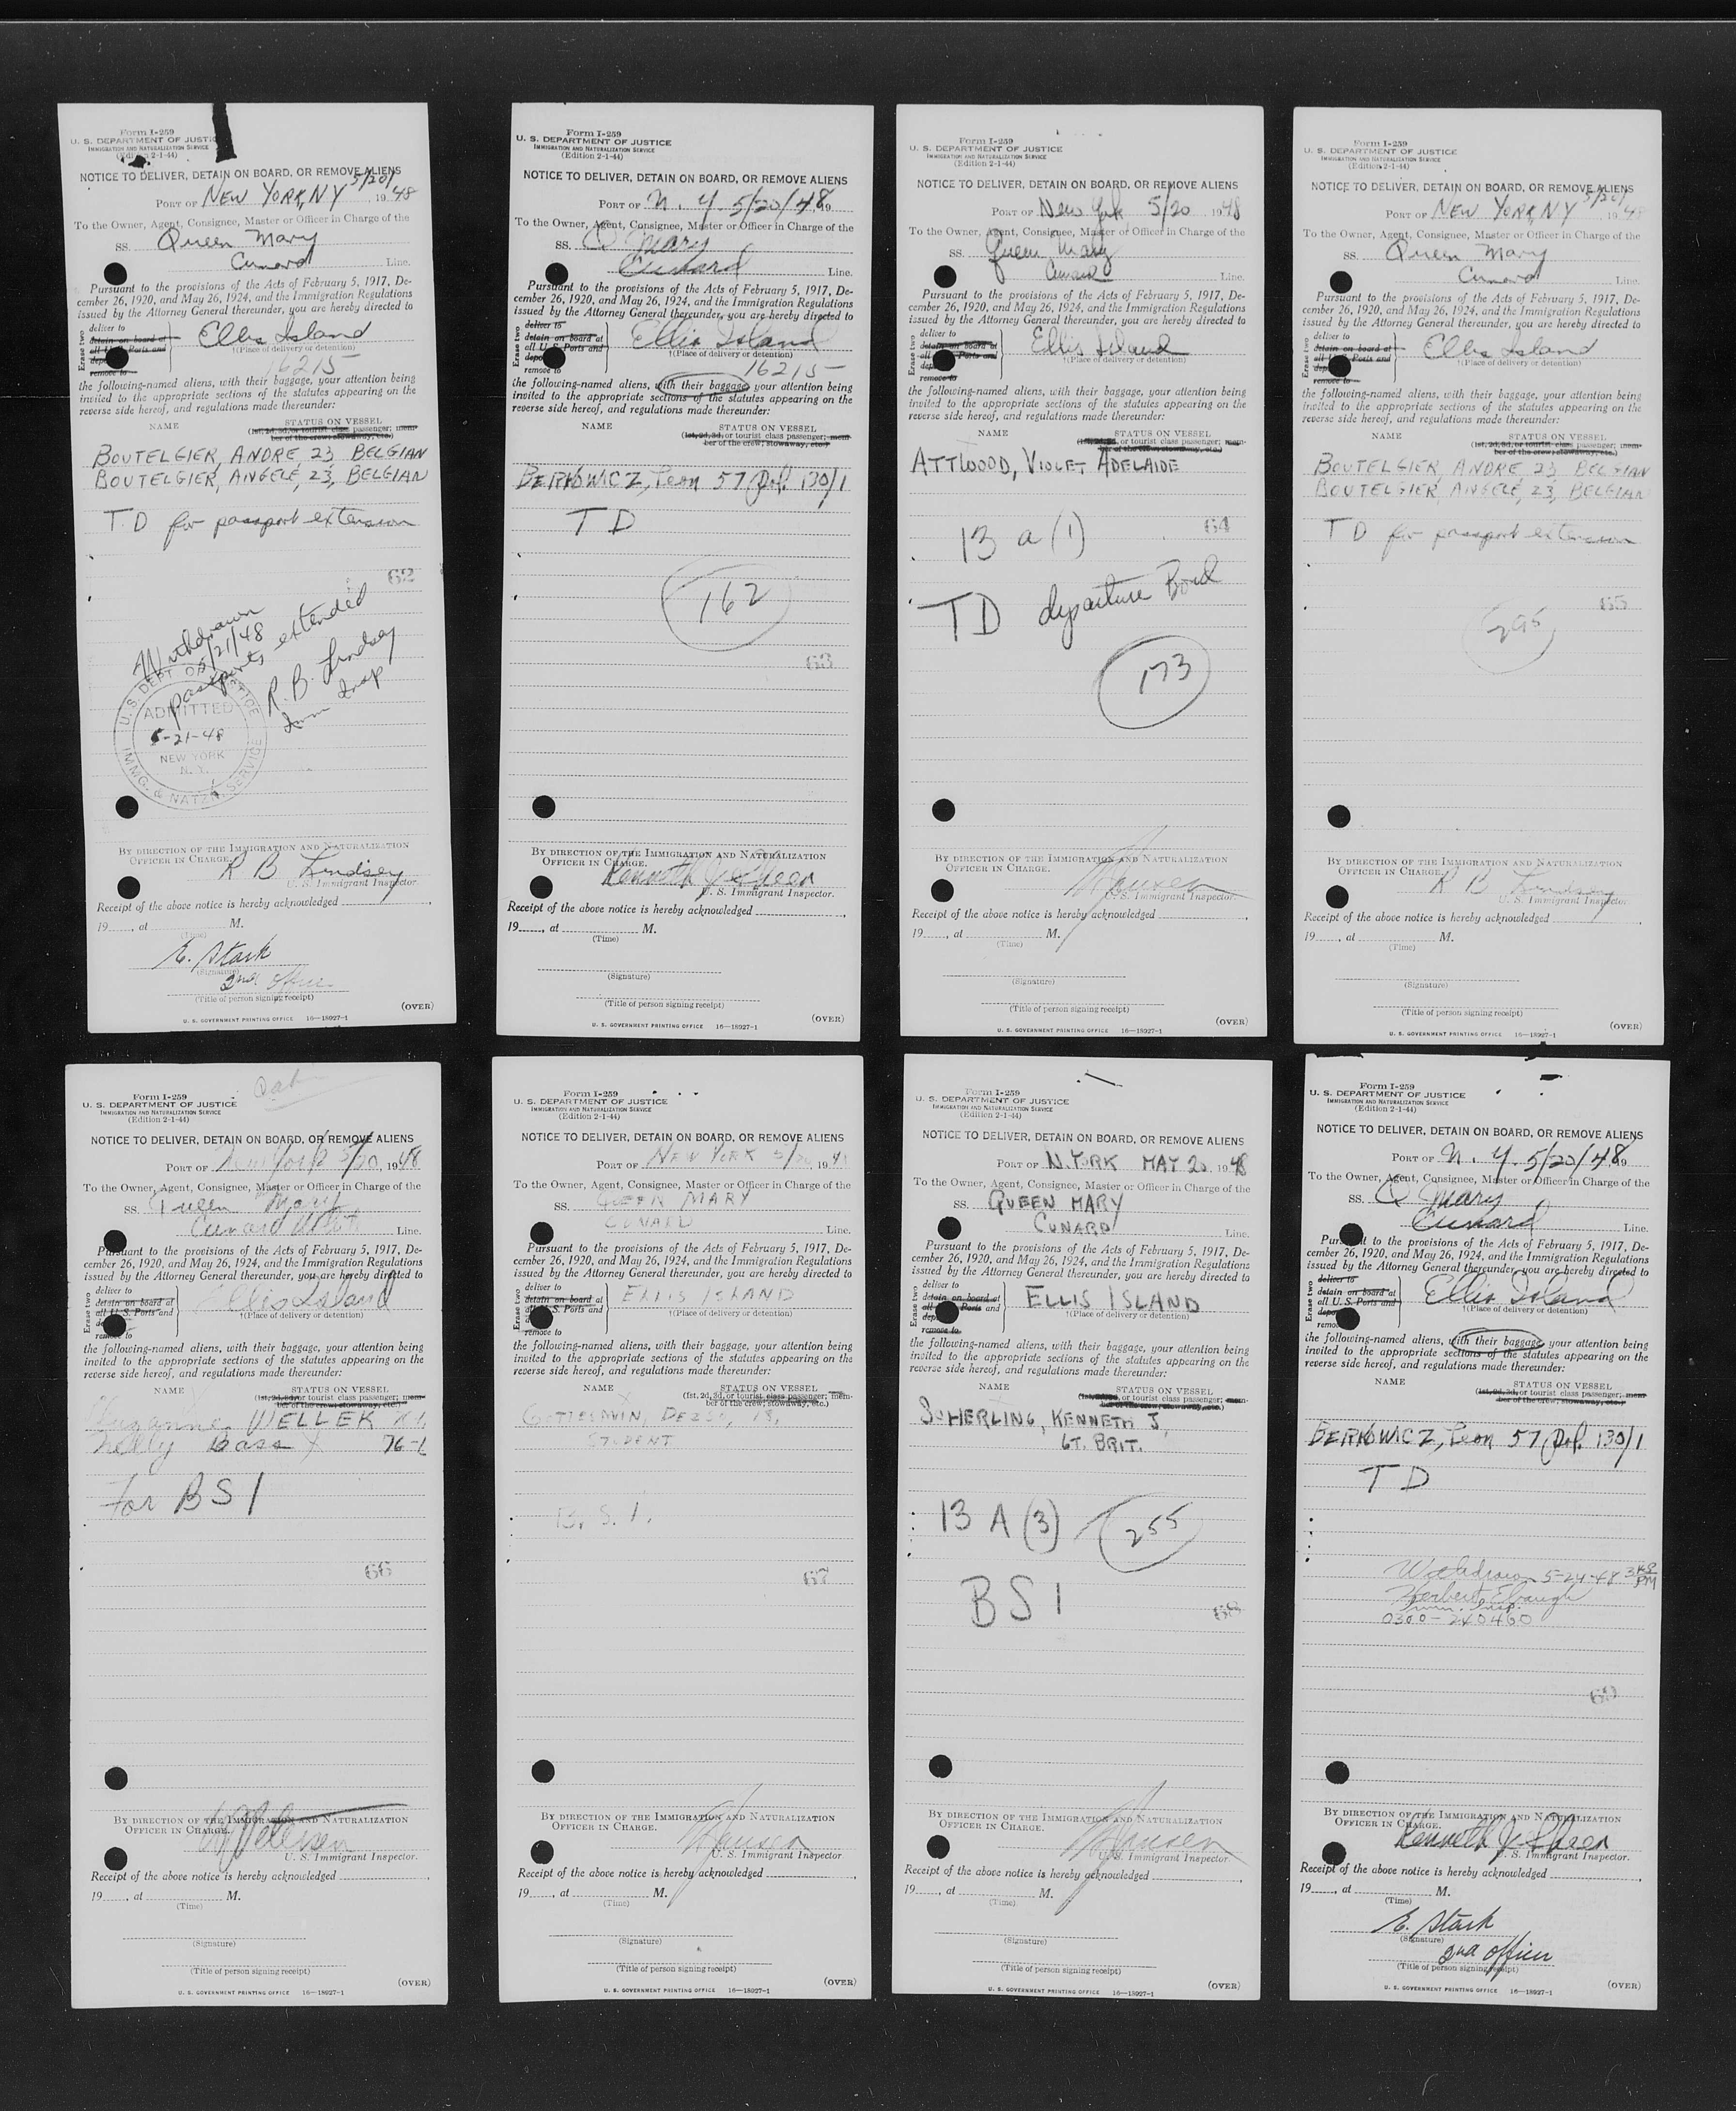 Form I-259
U. S. DEPARTMENT OF JUSTIC
IMMIGRATION AND NATURALIZATION SERVICE
(Edition 2-1-44)
NOTICE TO DELIVER, DETAIN ON BOARD, OR REMOVE ALIENS
PORT OF NEW YORK, NY 5/20/ 1948
To the Owner, Agent, Consignee, Master or Officer in Charge of the
SS. Queen Mary
Cunard
Pursuant to the provisions of the Acts of February 5, 1917, De-
cember 26, 1920, and May 26, 1924, and the Immigration Regulations
issued by the Attorney General thereunder, you are hereby directed to
Erase two
deliver to
detain on board at
all U. S. Ports and
remove to
Ellis Island
†(Place of delivery or detention)
16215
the following-named aliens, with their baggage, your attention being
invited to the appropriate sections of the statutes appearing on the
reverse side hereof, and regulations made thereunder:
NAME STATUS ON VESSEL
(1st, 2d, 3d, or tourist class passenger; mem-
ber of the crew; stowaway, etc.)
BOUTELGIER, ANDRE, 23 BELGIAN
BOUTELGIER, ANGELE, 23, BELGIAN
TD for passport extension
62
Withdrawn
5/21/48
passports extended
R. B. Lindsey
Imm Insp
U. S. DEPT OF JUSTICE
ADMITTED
5-21-48
NEW YORK
N. Y.
IMMG. & NATZN. SERVICE
BY DIRECTION OF THE IMMIGRATION AND NATURALIZATION
OFFICER IN CHARGE.
R B Lindsey
U. S. Immigrant Inspector.
Receipt of the above notice is hereby acknowledged
19, at M.
(Time)
E. Stark
(Signature)
2nd Officer
(Title of person signing receipt)
(OVER)
U. S. GOVERNMENT PRINTING OFFICE 16—18927-1
Form I-259
U. S. DEPARTMENT OF JUSTICE
IMMIGRATION AND NATURALIZATION SERVICE
(Edition 2-1-44)
NOTICE TO DELIVER, DETAIN ON BOARD, OR REMOVE ALIENS
PORT OF N. Y. 5/20/48 19
To the Owner, Agent, Consignee, Master or Officer in Charge of the
SS. Q Mary
Cunard Line.
Pursuant to the provisions of the Acts of February 5, 1917, De-
cember 26, 1920, and May 26, 1924, and the Immigration Regulations
issued by the Attorney General thereunder, you are hereby directed to
Erase two
deliver to
detain on board at
all U. S. Ports and
remove to
Ellis Island
†(Place of delivery or detention)
16215
the following-named aliens, with their baggage, your attention being
invited to the appropriate sections of the statutes appearing on the
reverse side hereof, and regulations made thereunder:
NAME STATUS ON VESSEL
(1st, 2d, 3d, or tourist class passenger; mem-
ber of the crew; stowaway, etc.)
BERKOWICZ, Leon 57 Pol. 130/1
TD
162
63
BY DIRECTION OF THE IMMIGRATION AND NATURALIZATION
OFFICER IN CHARGE.
Kenneth J.
U. S. Immigrant Inspector.
Receipt of the above notice is hereby acknowledged
19, at M.
(Time)
(Signature)
(Title of person signing receipt)
(OVER)
U. S. GOVERNMENT PRINTING OFFICE 16—18927-1
Form I-259
U. S. DEPARTMENT OF JUSTICE
IMMIGRATION AND NATURALIZATION SERVICE
(Edition 2-1-44)
NOTICE TO DELIVER, DETAIN ON BOARD, OR REMOVE ALIENS
PORT OF New York 5/20 1948
To the Owner, Agent, Consignee, Master or Officer in Charge of the
SS. Queen Mary
Cunard Line.
Pursuant to the provisions of the Acts of February 5, 1917, De-
cember 26, 1920, and May 26, 1924, and the Immigration Regulations
issued by the Attorney General thereunder, you are hereby directed to
Erase two
deliver to
detain on board at
all U. S. Ports and
remove to
Ellis Island
†(Place of delivery or detention)
the following-named aliens, with their baggage, your attention being
invited to the appropriate sections of the statutes appearing on the
reverse side hereof, and regulations made thereunder:
NAME STATUS ON VESSEL
(1st, 2d, 3d, or tourist class passenger; mem-
ber of the crew; stowaway, etc.)
ATTWOOD, VIOLET ADELAIDE
64
13 a (1)
TD departure Bond
173
BY DIRECTION OF THE IMMIGRATION AND NATURALIZATION
OFFICER IN CHARGE.
Hansen
U. S. Immigrant Inspector.
Receipt of the above notice is hereby acknowledged
19, at M.
(Time)
(Signature)
(Title of person signing receipt)
(OVER)
U. S. GOVERNMENT PRINTING OFFICE 16—18927-1
Form I-259
U. S. DEPARTMENT OF JUSTICE
IMMIGRATION AND NATURALIZATION SERVICE
(Edition 2-1-44)
NOTICE TO DELIVER, DETAIN ON BOARD, OR REMOVE ALIENS
PORT OF NEW YORK, NY 5/20/ 1948
To the Owner, Agent, Consignee, Master or Officer in Charge of the
SS. Queen Mary
Cunard Line.
Pursuant to the provisions of the Acts of February 5, 1917, De-
cember 26, 1920, and May 26, 1924, and the Immigration Regulations
issued by the Attorney General thereunder, you are hereby directed to
Erase two
deliver to
detain on board at
all U. S. Ports and
remove to
Ellis Island
†(Place of delivery or detention)
the following-named aliens, with their baggage, your attention being
invited to the appropriate sections of the statutes appearing on the
reverse side hereof, and regulations made thereunder:
NAME STATUS ON VESSEL
(1st, 2d, 3d, or tourist class passenger; mem-
ber of the crew; stowaway, etc.)
BOUTELGIER, ANDRE, 23, BELGIAN
BOUTELGIER, ANGELE, 23, BELGIAN
TD for passport extension
65
295
BY DIRECTION OF THE IMMIGRATION AND NATURALIZATION
OFFICER IN CHARGE.
R B Lindsey
U. S. Immigrant Inspector.
Receipt of the above notice is hereby acknowledged
19, at M.
(Time)
(Signature)
(Title of person signing receipt)
(OVER)
U. S. GOVERNMENT PRINTING OFFICE 16—18927-1
Form I-259
U. S. DEPARTMENT OF JUSTICE
IMMIGRATION AND NATURALIZATION SERVICE
(Edition 2-1-44)
NOTICE TO DELIVER, DETAIN ON BOARD, OR REMOVE ALIENS
PORT OF New York 5/20, 1948
To the Owner, Agent, Consignee, Master or Officer in Charge of the
SS. Queen Mary
Cunard White Line.
Pursuant to the provisions of the Acts of February 5, 1917, De-
cember 26, 1920, and May 26, 1924, and the Immigration Regulations
issued by the Attorney General thereunder, you are hereby directed to
Erase two
deliver to
detain on board at
all U. S. Ports and
remove to
Ellis Island
†(Place of delivery or detention)
the following-named aliens, with their baggage, your attention being
invited to the appropriate sections of the statutes appearing on the
reverse side hereof, and regulations made thereunder:
NAME STATUS ON VESSEL
(1st, 2d, 3d, or tourist class passenger; mem-
ber of the crew; stowaway, etc.)
Suzanne WELLEK
Nelly Bass X 76-1
For BSI
66
BY DIRECTION OF THE IMMIGRATION AND NATURALIZATION
OFFICER IN CHARGE.
U. S. Immigrant Inspector.
Receipt of the above notice is hereby acknowledged
19, at M.
(Time)
(Signature)
(Title of person signing receipt)
(OVER)
U. S. GOVERNMENT PRINTING OFFICE 16—18927-1
Form I-259
U. S. DEPARTMENT OF JUSTICE
IMMIGRATION AND NATURALIZATION SERVICE
(Edition 2-1-44)
NOTICE TO DELIVER, DETAIN ON BOARD, OR REMOVE ALIENS
PORT OF NEW YORK 5/20 194
To the Owner, Agent, Consignee, Master or Officer in Charge of the
SS. QUEEN MARY
CUNARD Line.
Pursuant to the provisions of the Acts of February 5, 1917, De-
cember 26, 1920, and May 26, 1924, and the Immigration Regulations
issued by the Attorney General thereunder, you are hereby directed to
Erase two
deliver to
detain on board at
all U. S. Ports and
remove to
ELLIS ISLAND
†(Place of delivery or detention)
the following-named aliens, with their baggage, your attention being
invited to the appropriate sections of the statutes appearing on the
reverse side hereof, and regulations made thereunder:
NAME STATUS ON VESSEL
(1st, 2d, 3d, or tourist class passenger; mem-
ber of the crew; stowaway, etc.)
DEZSO,
STUDENT
B. S. I.
67
BY DIRECTION OF THE IMMIGRATION AND NATURALIZATION
OFFICER IN CHARGE.
Hansen
U. S. Immigrant Inspector.
Receipt of the above notice is hereby acknowledged
19, at M.
(Time)
(Signature)
(Title of person signing receipt)
(OVER)
U. S. GOVERNMENT PRINTING OFFICE 16—18927-1
Form I-259
U. S. DEPARTMENT OF JUSTICE
IMMIGRATION AND NATURALIZATION SERVICE
(Edition 2-1-44)
NOTICE TO DELIVER, DETAIN ON BOARD, OR REMOVE ALIENS
PORT OF N. YORK MAY 20, 1948
To the Owner, Agent, Consignee, Master or Officer in Charge of the
SS. QUEEN MARY
CUNARD Line.
Pursuant to the provisions of the Acts of February 5, 1917, De-
cember 26, 1920, and May 26, 1924, and the Immigration Regulations
issued by the Attorney General thereunder, you are hereby directed to
Erase two
deliver to
detain on board at
all U. S. Ports and
remove to
ELLIS ISLAND
†(Place of delivery or detention)
the following-named aliens, with their baggage, your attention being
invited to the appropriate sections of the statutes appearing on the
reverse side hereof, and regulations made thereunder:
NAME STATUS ON VESSEL
(1st, 2d, 3d, or tourist class passenger; mem-
ber of the crew; stowaway, etc.)
SCHERLING, KENNETH J,
GT. BRIT.
13 A (3) 255
BSI
68
BY DIRECTION OF THE IMMIGRATION AND NATURALIZATION
OFFICER IN CHARGE.
Hansen
U. S. Immigrant Inspector.
Receipt of the above notice is hereby acknowledged
19, at M.
(Time)
(Signature)
(Title of person signing receipt)
(OVER)
U. S. GOVERNMENT PRINTING OFFICE 16—18927-1
Form I-259
U. S. DEPARTMENT OF JUSTICE
IMMIGRATION AND NATURALIZATION SERVICE
(Edition 2-1-44)
NOTICE TO DELIVER, DETAIN ON BOARD, OR REMOVE ALIENS
PORT OF N. Y. 5/20/48 19
To the Owner, Agent, Consignee, Master or Officer in Charge of the
SS. Q Mary
Cunard Line.
Pursuant to the provisions of the Acts of February 5, 1917, De-
cember 26, 1920, and May 26, 1924, and the Immigration Regulations
issued by the Attorney General thereunder, you are hereby directed to
Erase two
deliver to
detain on board at
all U. S. Ports and
remove to
Ellis Island
†(Place of delivery or detention)
the following-named aliens, with their baggage, your attention being
invited to the appropriate sections of the statutes appearing on the
reverse side hereof, and regulations made thereunder:
NAME STATUS ON VESSEL
(1st, 2d, 3d, or tourist class passenger; mem-
ber of the crew; stowaway, etc.)
BERKOWICZ, Leon 57 Pol. 130/1
TD
Withdrawn 5-24-48 3 PM
Herbert Ebaugh
Imm. Insp.
0300-240460
69
BY DIRECTION OF THE IMMIGRATION AND NATURALIZATION
OFFICER IN CHARGE.
Kenneth J.
U. S. Immigrant Inspector.
Receipt of the above notice is hereby acknowledged
19, at M.
(Time)
E. Stark
(Signature)
2nd officer
(Title of person signing receipt)
(OVER)
U. S. GOVERNMENT PRINTING OFFICE 16—18927-1